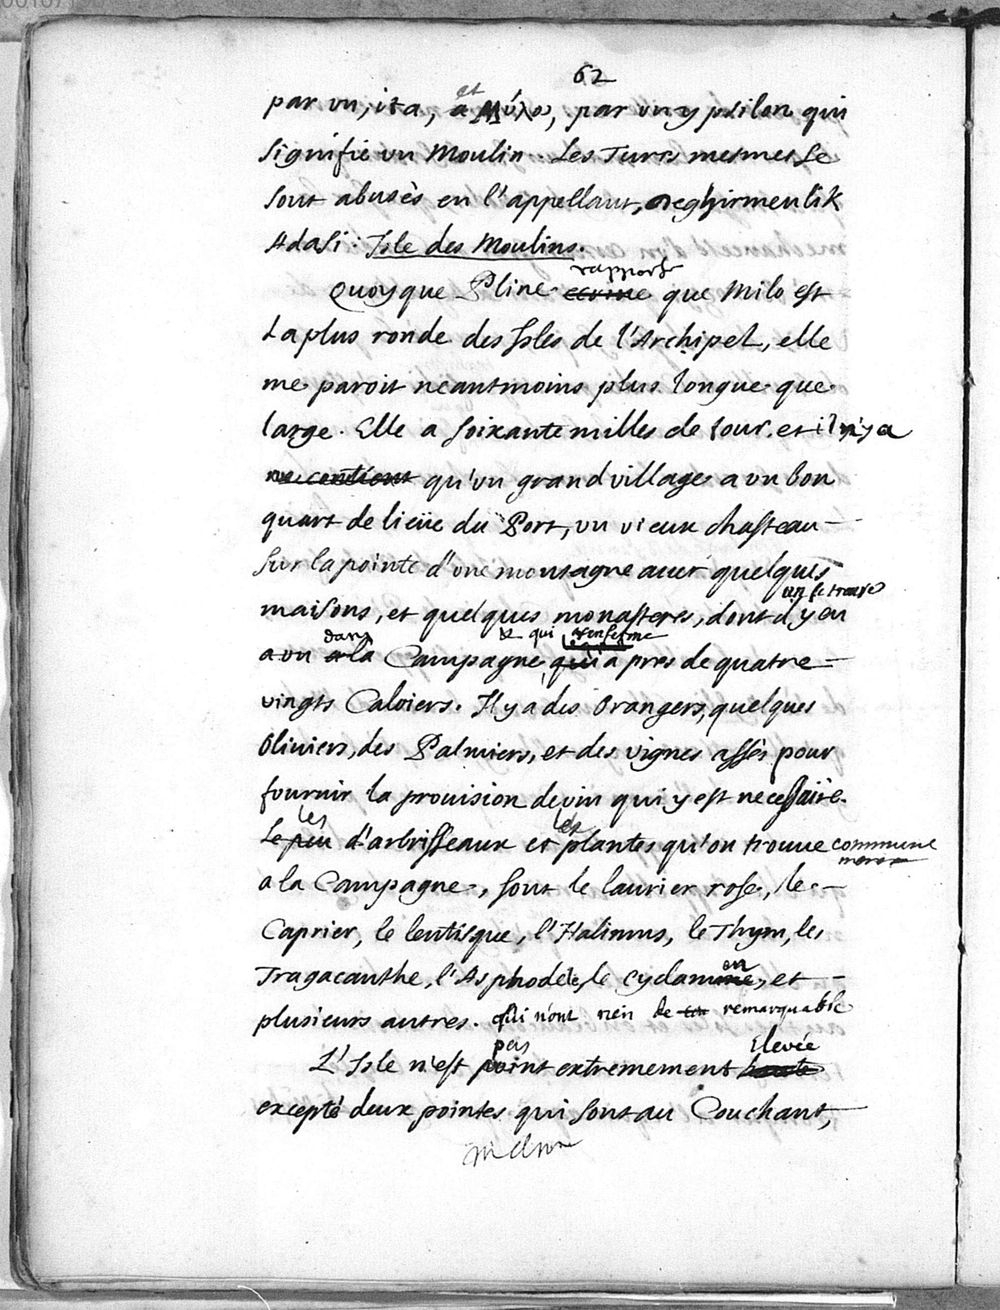 62
par un, ita, et a Μύλος, par un ypsilon qui
signifie un Moulin. Les Turcs mesmes se
sont abusès en l'appellant, Deghirmenlik
Adasi: Isle des Moulins.
rapporte
Quoyque Pline ecrive que Milo est
La plus ronde des Isles de l'Archipel, elle
me paroit neantmoins plus longue que
large. Elle a soixante milles de tour. et il n'y a
ne contient qu'un grand village a un bon
quart de lieüe du Port, un vieux chasteau
sur la pointe d'une montagne avec quelques
un se trouve
maisons, et quelques monasteres, dont il y en
dans & qui renferme
a un a la Campagne, qui a pres de quatre
vingts Caloiers. Il y a des Orangers, quelques
Oliviers, des Palmiers, et des vignes assès pour
fournir la provision de vin qui y est necessaire.
les les
Le peu d'arbrisseaux et plantes qu'on trouve commune
a la Campagne, sont le laurier rose, le
Caprier, le lentisque, l'Halimus, le Thym, les
en
Tragacanthe, l'Asphodele, le cydamine, et
plusieurs autres. qui n'ont rien de remarquable
pas Elevée
L'Isle n'est point extremement haute
excepté deux pointes qui sont au Couchant,